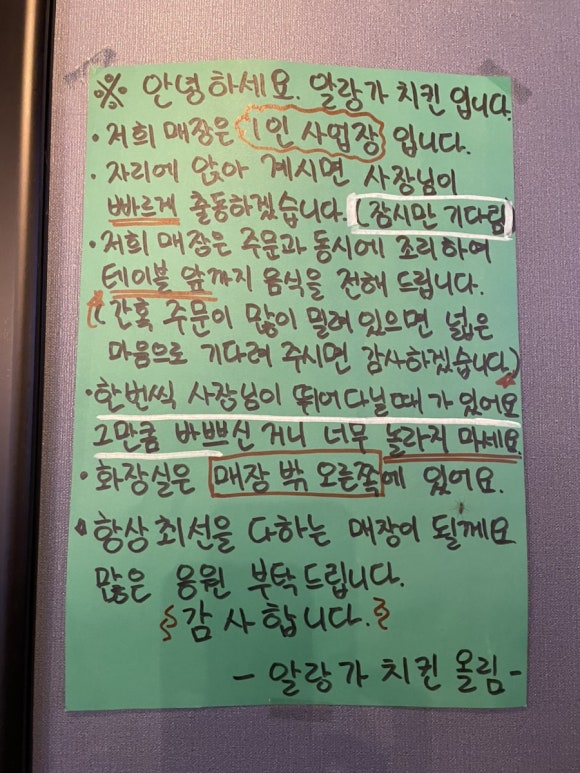 ※ 안녕하세요. 알랑가 치킨입니다.
· 저희 매장은 1인 사업장 입니다.
· 자리에 앉아 계시면 사장님이
빠르게 출동하겠습니다. (잠시만 기다림
· 저희 매장은 주문과 동시에 조리하여
테이블 앞까지 음식을 전해 드립니다.
(간혹 주문이 많이 밀려있으면 넓은
마음으로 기다려 주시면 감사하겠습니다)
· 한번씩 사장님이 뛰어다닐때가 있어요
그만큼 바쁘신 거니 너무 놀라지 마세요.
· 화장실은 매장 밖 오른쪽에 있어요.
· 항상 최선을 다하는 매장이 될께요
많은 응원 부탁드립니다.
감사합니다.
- 알랑가 치킨 올림 -